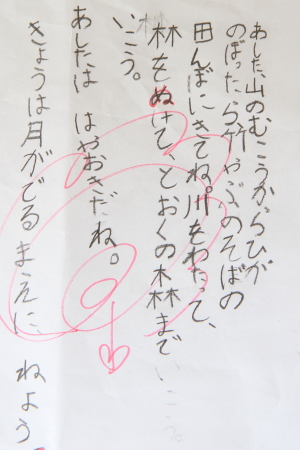 あした、山のむこうからひが
のぼったら竹やぶのそばの
田んぼにきてね。川をわたって、
林をぬけて、とおくの森まで
いこう。
あしたは はやおきだね。
きょうは月がでるまえに、ねよう